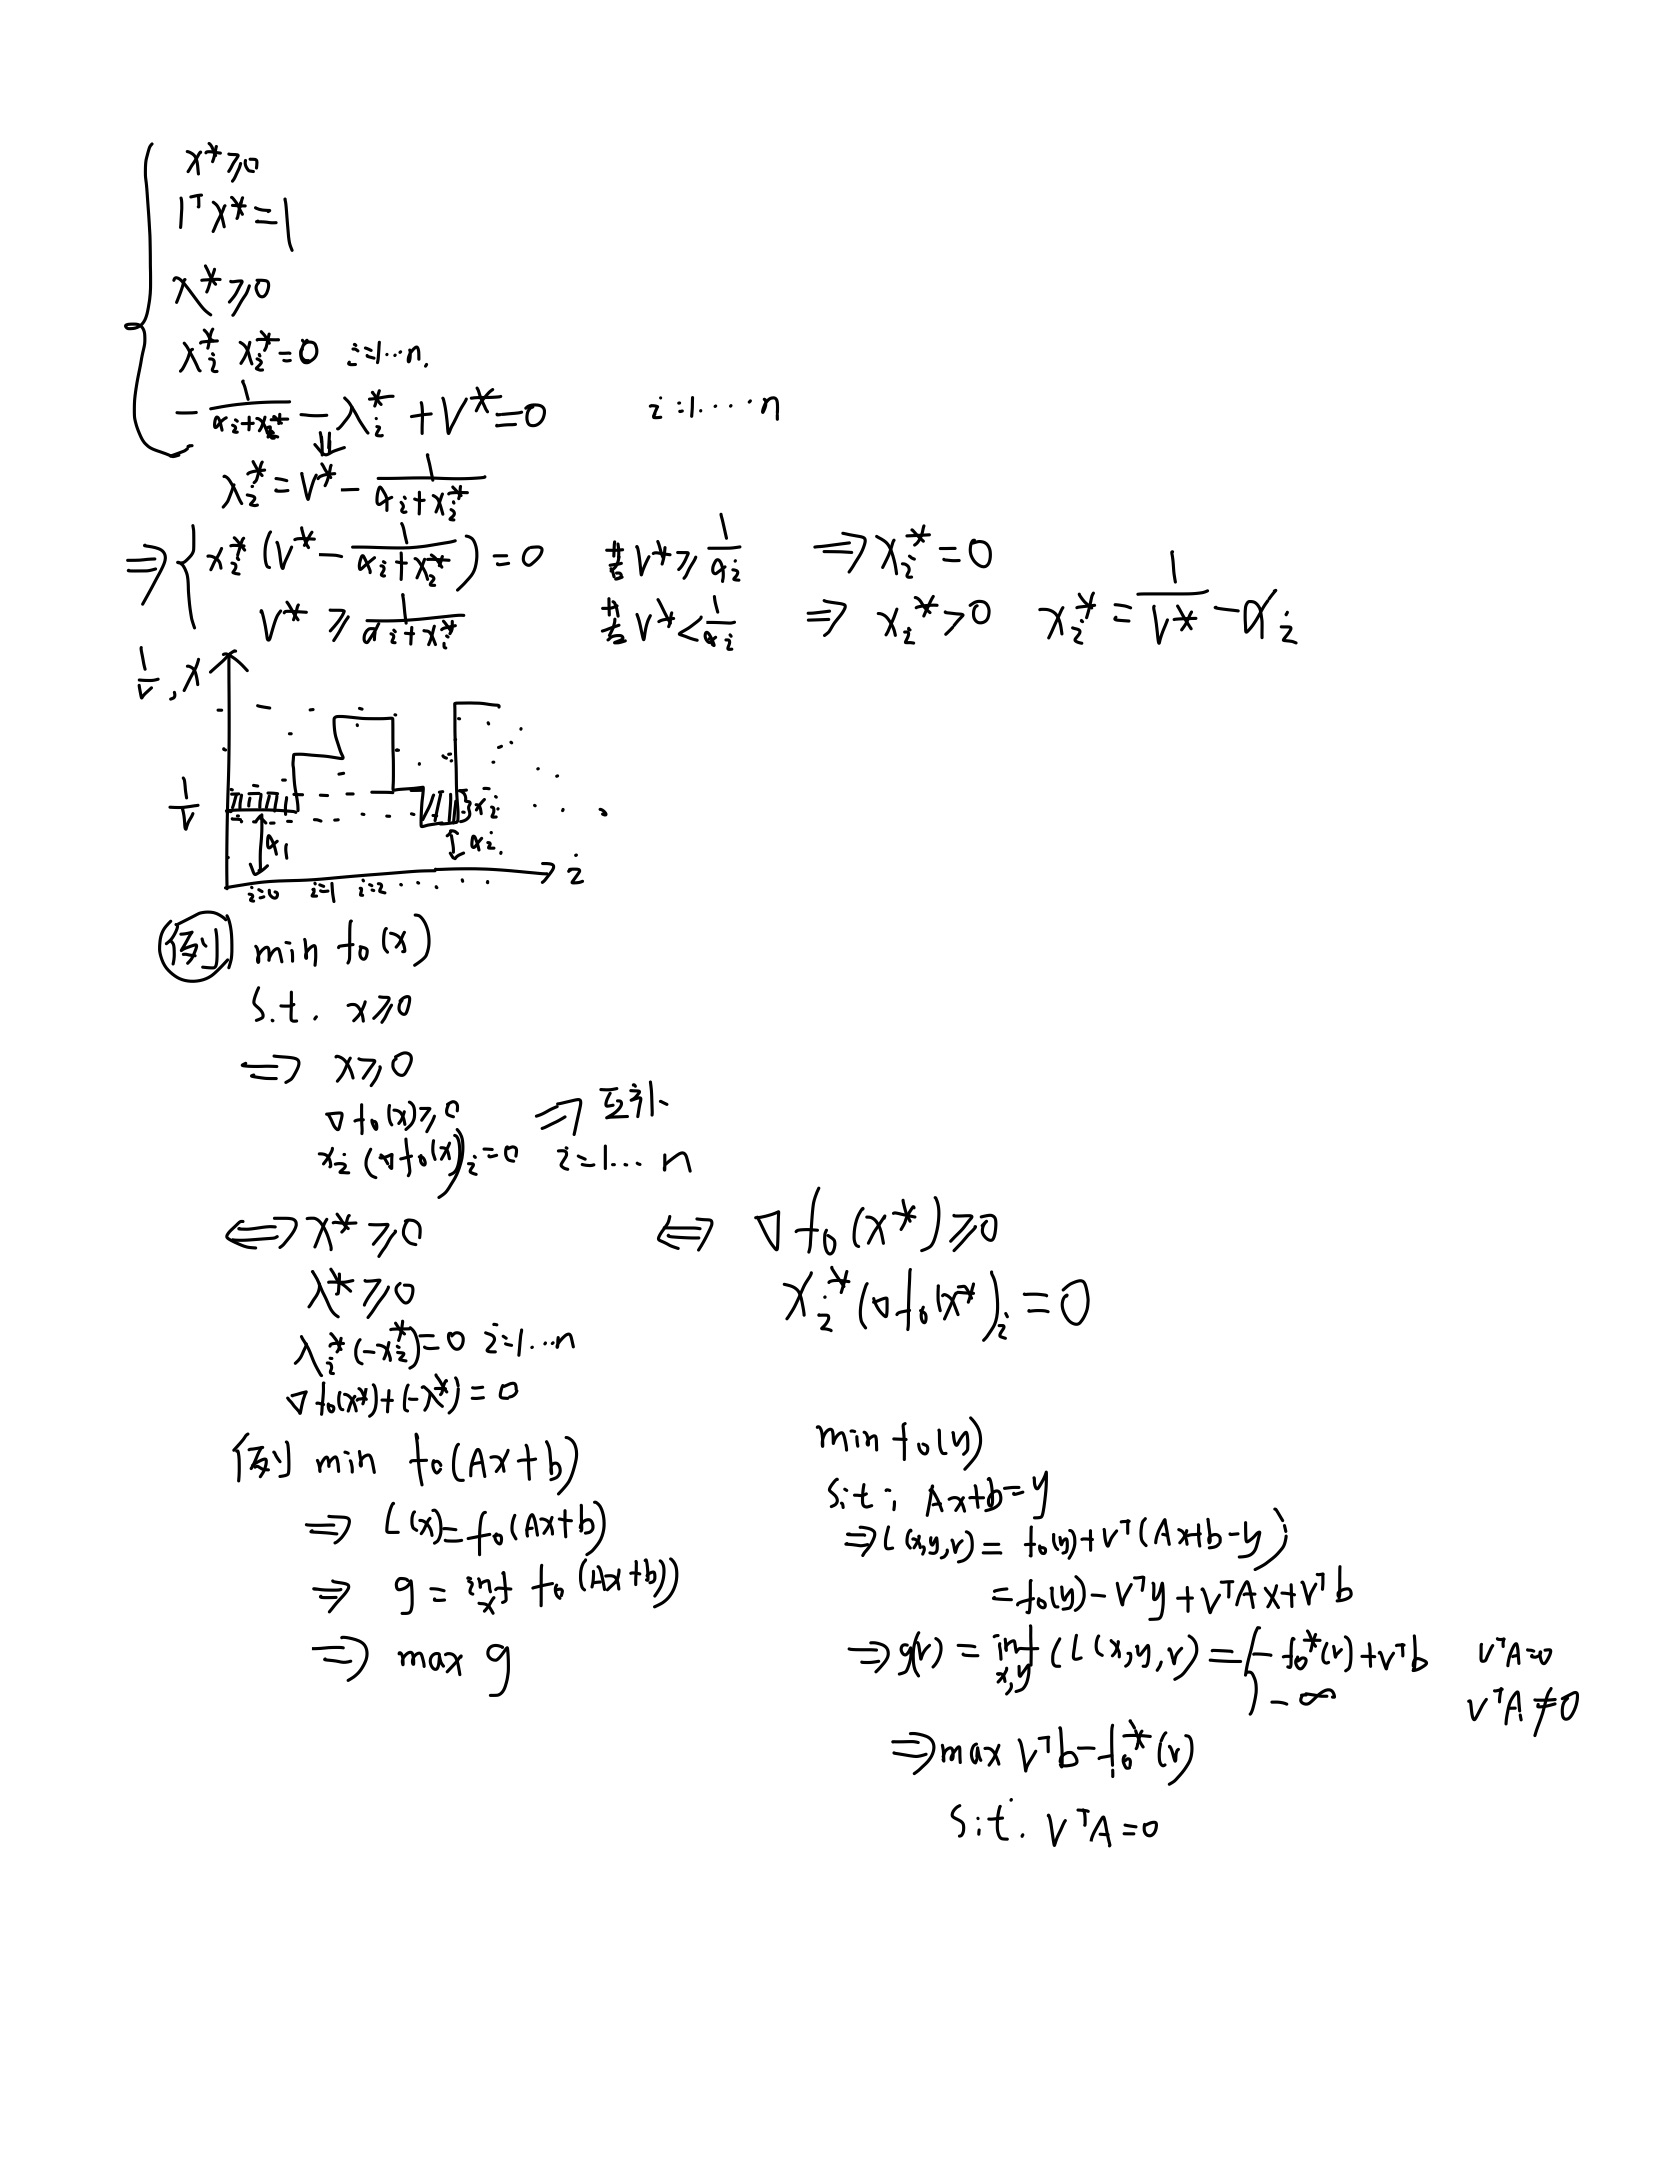 x* ⩾ 0
1ᵀx* = 1
λ* ⩾ 0
λᵢ* xᵢ* = 0 i=1⋯n.
− 1/(αᵢ+xᵢ*) − λᵢ* + V* = 0 i=1⋯⋯n
⇓
λᵢ* = V* − 1/(αᵢ+xᵢ*)
⇒ { xᵢ* (V* − 1/(αᵢ+xᵢ*)) = 0 若 V* ⩾ 1/αᵢ ⇒ xᵢ* = 0
V* ⩾ 1/(αᵢ+xᵢ*) 若 V* < 1/αᵢ ⇒ xᵢ* > 0 xᵢ* = 1/V* − αᵢ
1/v, x
1/v
xᵢ
α₁ αᵢ
i=0 i=1 i=2 ⋯⋯ i
例 min f₀(x)
s.t. x ⩾ 0
⇒ x ⩾ 0
∇f₀(x) ⩾ 0 ⇒ 互补
xᵢ (∇f₀(x))ᵢ = 0 i=1⋯n
⇔ x* ⩾ 0 ⇔ ∇f₀(x*) ⩾ 0
λ* ⩾ 0 xᵢ* (∇f₀(x*))ᵢ = 0
λᵢ* (−xᵢ*) = 0 i=1⋯n
∇f₀(x*) + (−λ*) = 0
例 min f₀(Ax+b)
⇒ L(x) = f₀(Ax+b)
⇒ g = inf x f₀(Ax+b))
⇒ max g
min f₀(y)
s.t. Ax+b = y
⇒ L(x,y,v) = f₀(y) + vᵀ(Ax+b−y)
= f₀(y) − vᵀy + vᵀAx + vᵀb
⇒ g(v) = inf x,y (L(x,y,v) = { − f₀*(v) + vᵀb vᵀA=0
−∞ vᵀA≠0
⇒ max vᵀb − f₀*(v)
s.t. vᵀA = 0